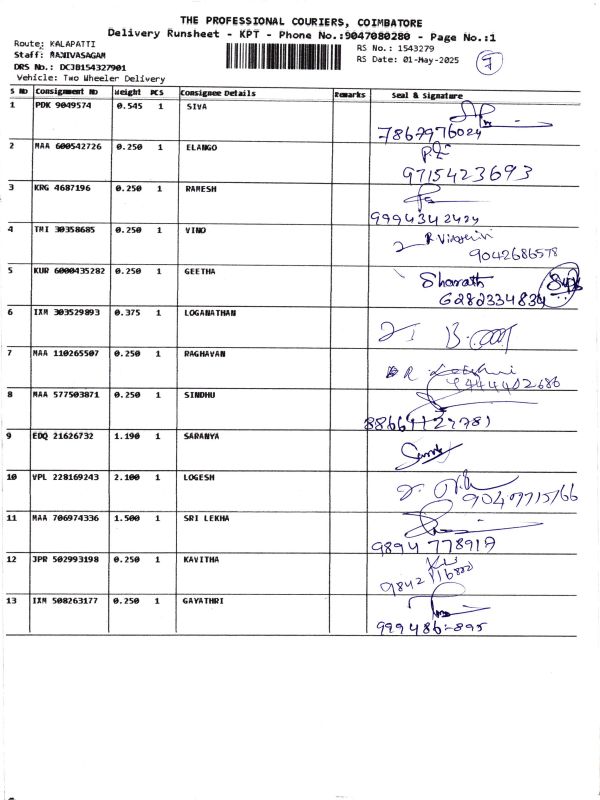 THE PROFESSIONAL COURIERS, COIMBATORE
Delivery Runsheet - KPT - Phone No.:9047080280 - Page No.:1
Route: KALAPATTI
RS No.: 1543279
Staff: MANIVASAGAM
RS Date: 01-May-2025
DRS No.: DCJB154327901
Vehicle: Two Wheeler Delivery
S No Consignment No Weight PCS Consignee Details Remarks Seal & Signature
1 PDK 9049574 0.545 1 SIVA
7867976024
2 MAA 600542726 0.250 1 ELANGO
9715423693
3 KRG 4687196 0.250 1 RAMESH
9994342424
4 TMI 30358685 0.250 1 VINO
9042686578
5 KUR 6000435282 0.250 1 GEETHA Sharath
6282334834
6 IXM 303529893 0.375 1 LOGANATHAN
7 MAA 110265507 0.250 1 RAGHAVAN
9444402686
8 MAA 577503871 0.250 1 SINDHU
9 EDQ 21626732 1.190 1 SARANYA
10 VPL 228169243 2.100 1 LOGESH
11 MAA 706974336 1.500 1 SRI LEKHA
12 JPR 502993198 0.250 1 KAVITHA
13 IXM 508263177 0.250 1 GAYATHRI